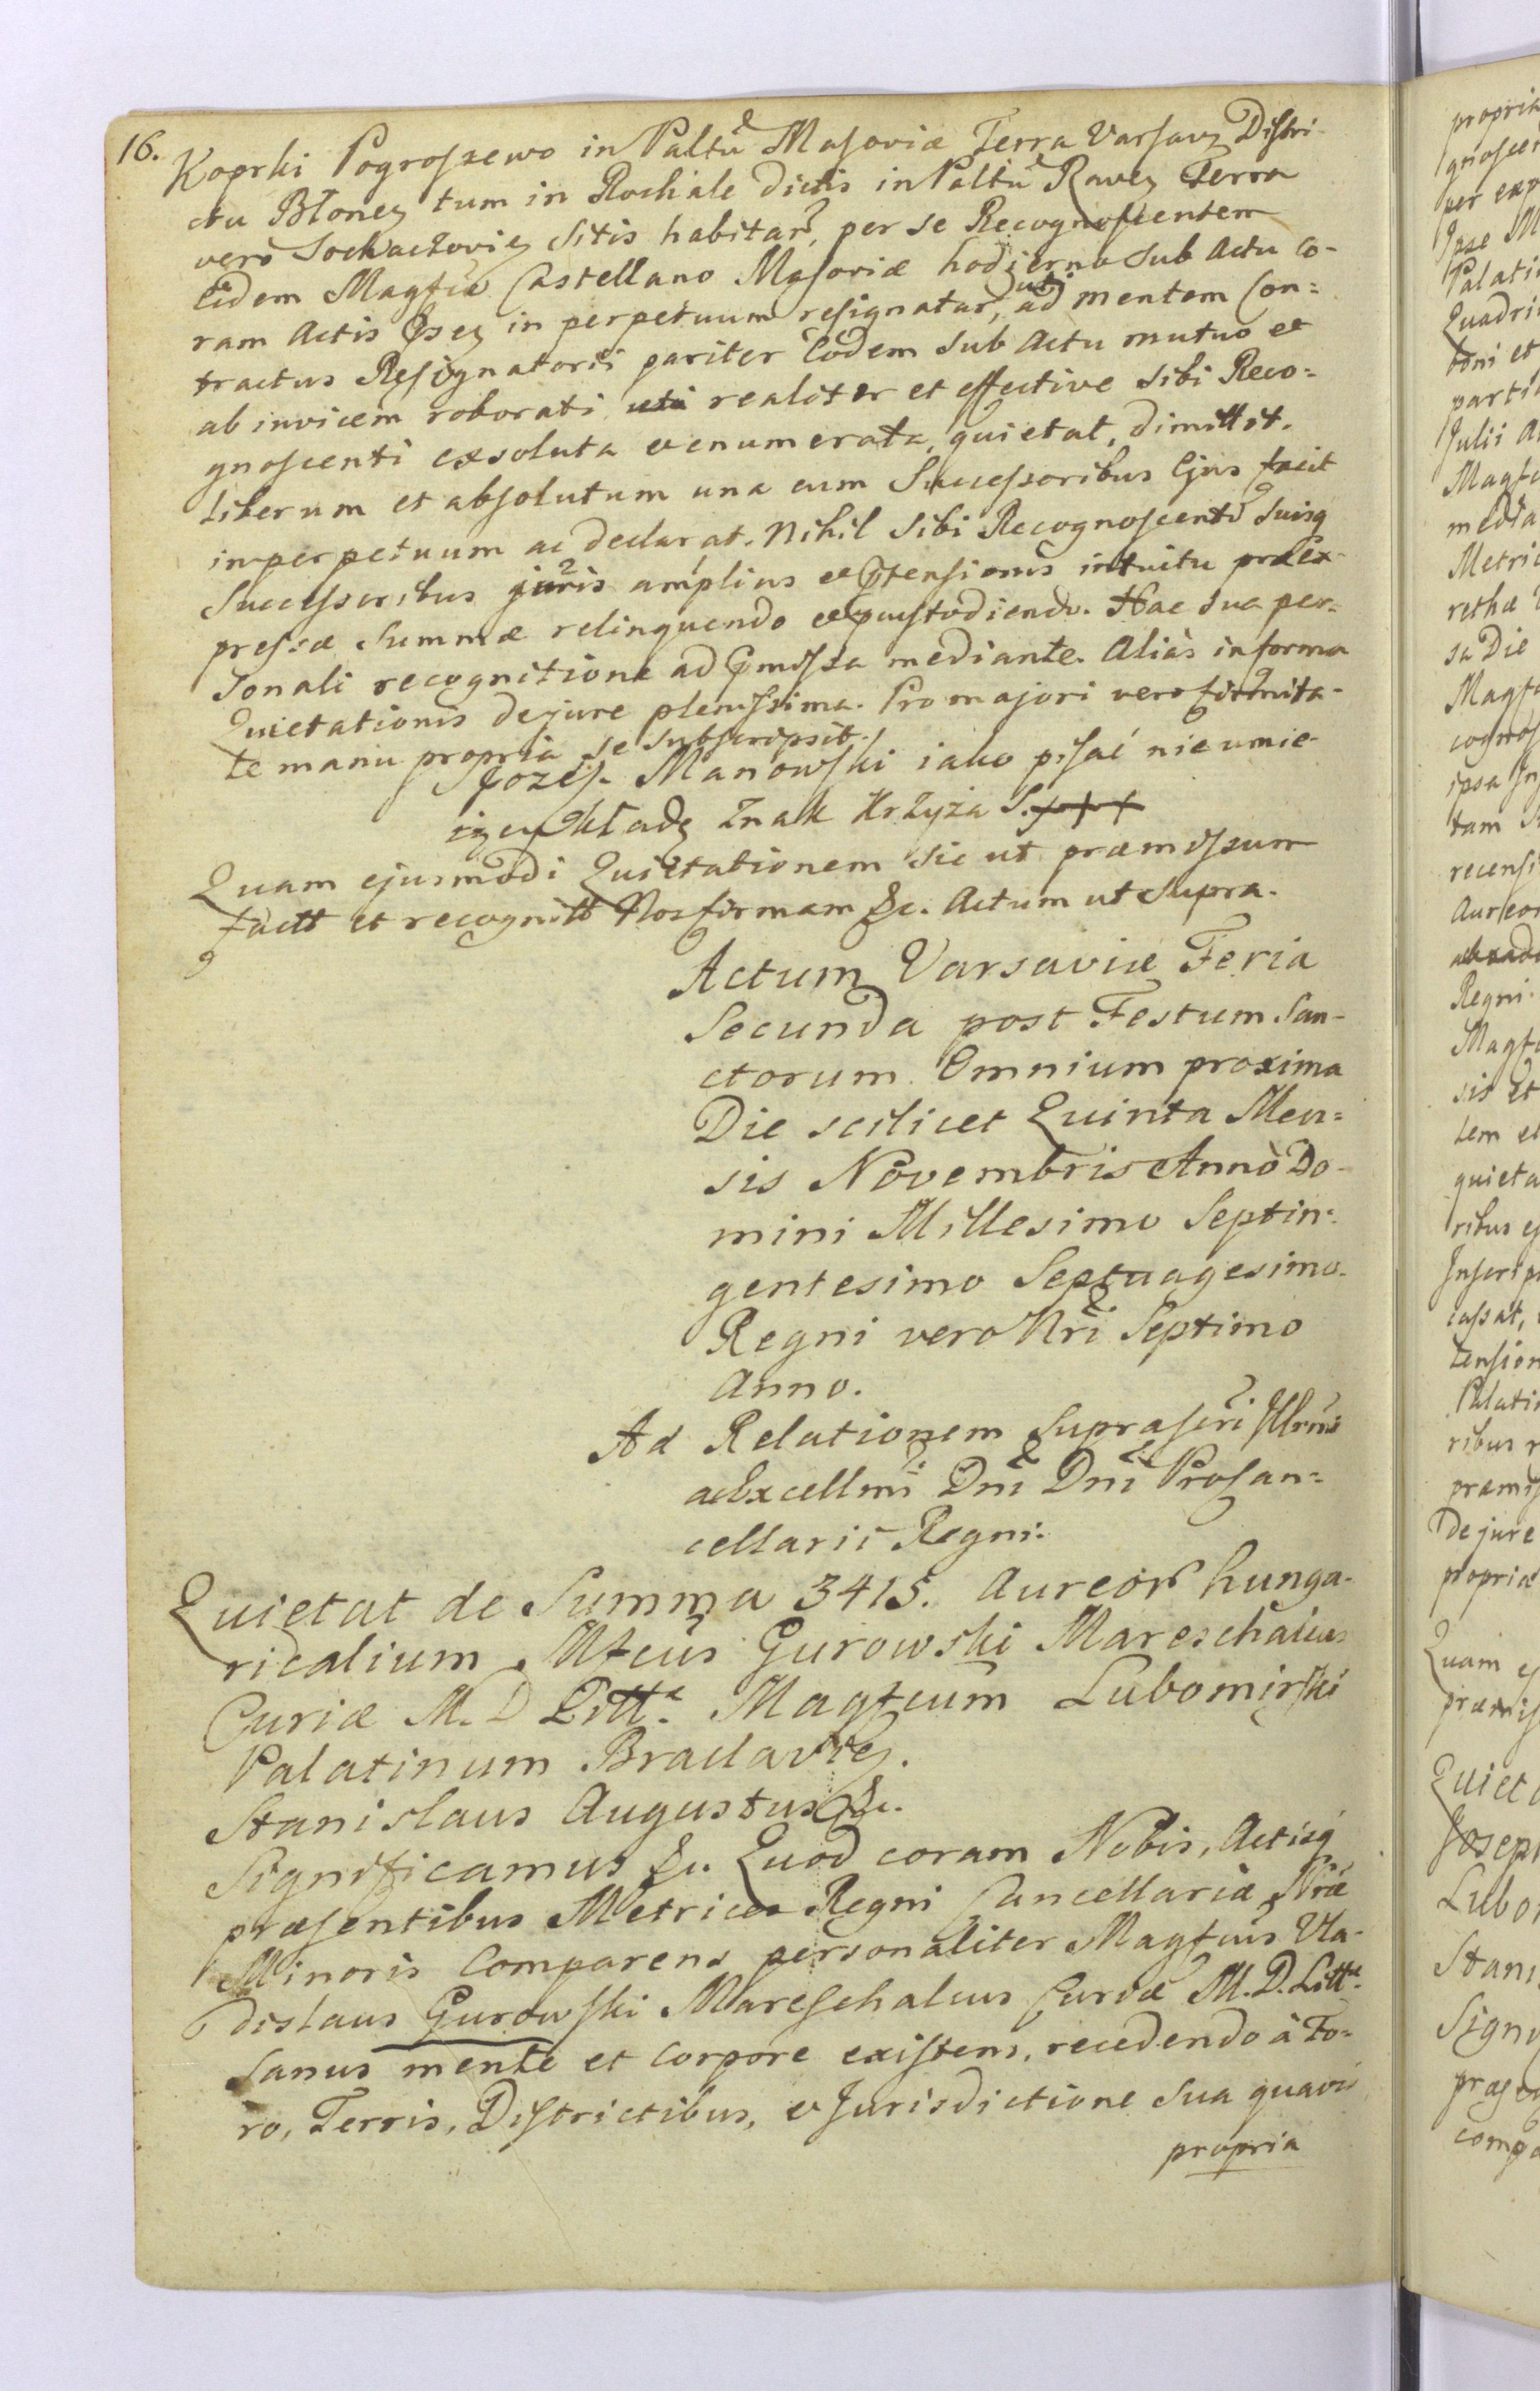 16.
Koprki Pogroszewo in Paltũ Masoviæ Terra Varsavz Distri-
ctu Błonez tum in Rochale dictis in Paltũ Ravez Terra
verò Sochaczoviz Sitis habitar̃, per se Recognoscentem
Eidem Magfco Castellano Masoviæ hodierno Sub Actu co-
ram Actis Psez in perpetuum resignatar, uti ad mentem Con=
tractus Resignatorii pariter Eodem Sub Actu mutuo et
ab invicem roborati realiter et effective Sibi Reco=
gnoscenti exsoluta et enumerata, quietat, dimittit.
Liberum et absolutum una cum Successoribus Ejus facit
inperpetuum ac declarat. Nihil Sibi Recognoscenti Suisq
Successoribus juris amplius et Ptensionis intuitu præex-
pressæ Summæ relinquendo et custodiendo. Hac Sua per-
sonali recognitione ad Pmissa mediante. Aliàs in forma
Quietationis de jure plenissima. Pro majori vero firmita-
te manu propria se subscripsit.
Jozef. Manowski iako pisać nie umie-
iącykładę Znak Krzyża S. +++
Quam ejusmodi Quietationem Sic ut præmissum
factt et recognitt Nos firmam &c. Actum ut Supra.
Actum Varsaviæ Feria
Secunda post Festum San-
ctorum Omnium proxima
Die scilicet Quinta Men=
sis Novembris Annò Do-
mini Millesimo Septin=
gentesimo Septuagesimo.
Regni vero Nri Septimo
Anno.
Ad Relationem Suprascri Illrmi
ac Excellmi Dni Dni Procan=
cellarii Regni.
Quietat de Summa 3415. Aureor hunga-
ricalium Mfcus Gurowski Mareschalcus
Curiæ M. D Litt. Magfcum Lubomirski
Palatinum Braclaviz.
Stanislaus Augustus &c.
Significamus &c. Quod coram Nobis, Actisq
præsentibus Metrices Regni Cancellariæ Nræ
Minoris Comparens personaliter Magfcus Vla-
dislaus Gurowski Mareschalcus Curiæ M. D. Litt.
Sanus mente et Corpore existens, recedendo à Fo=
ro, Terris, Districtibus, et Jurisdictione Sua quavis
propria